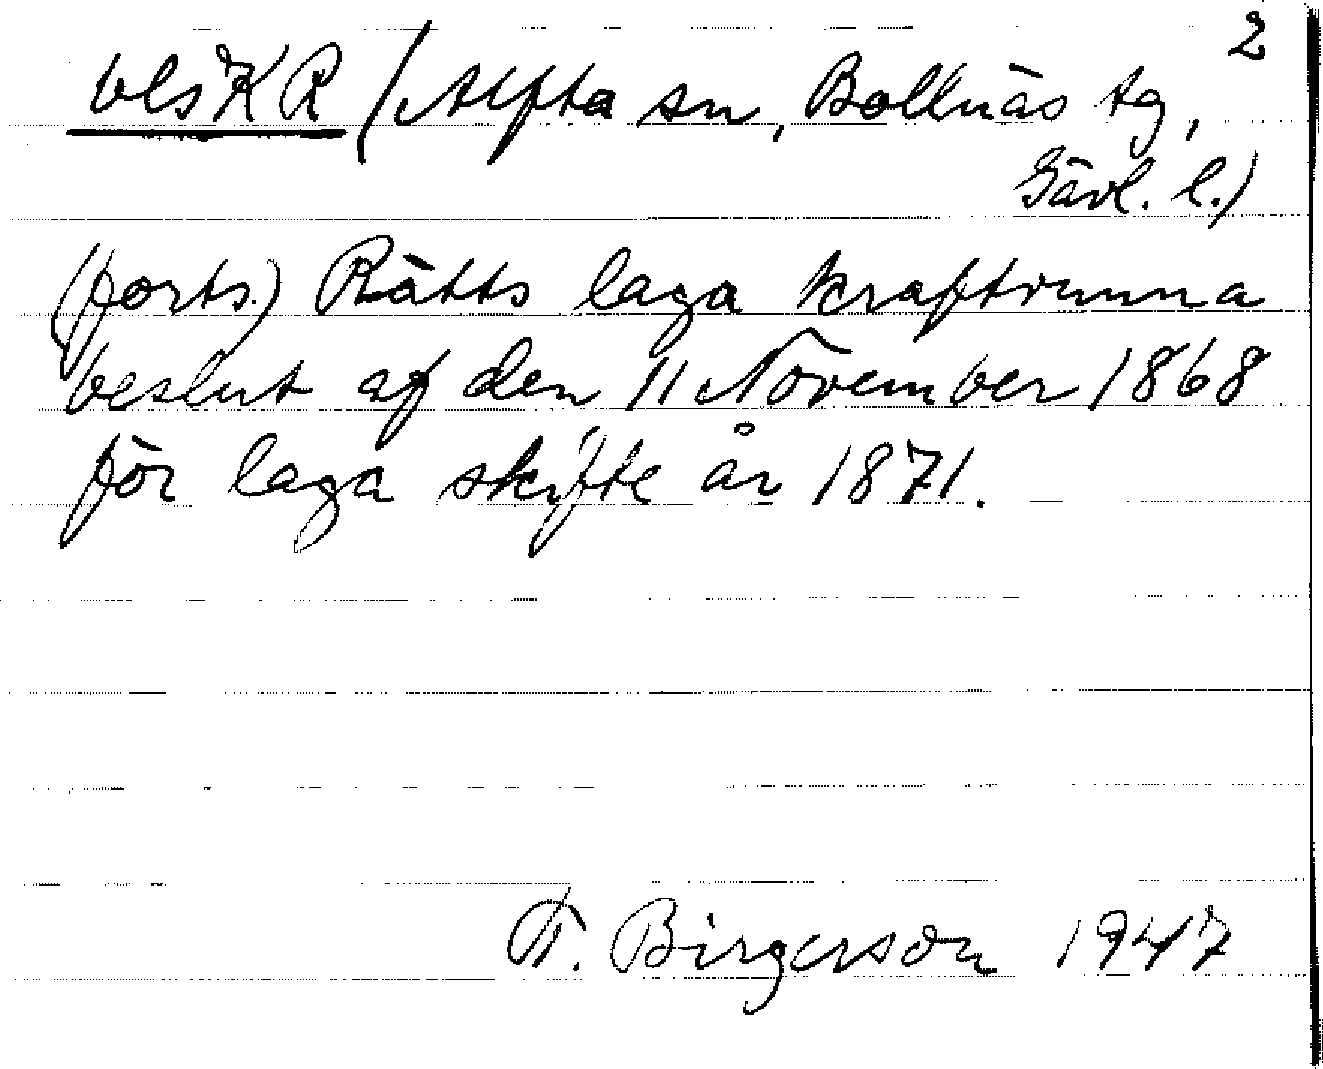 2
blsKR (Alfta sn, Bollnäs tg,
Gävl. l.)
(forts.) Rätts laga kraftvunna
beslut af den 11 November 1868
för laga skifte år 1871.
T. Birgerson 1947